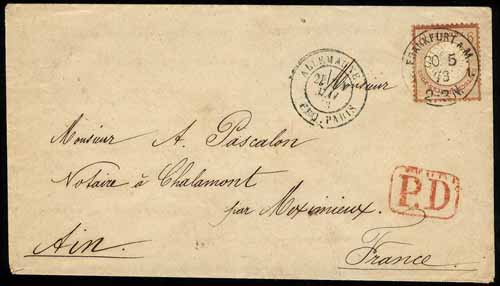 FRANKFURT A.M.
30 5
73
2-3N.
ALLEMAGNE
21
MAI
ERQ. PARIS
Monsieur
Monsieur A. Pascalon
Notaire à Chalamont
par Meximieux.
P.D
Ain.
France.